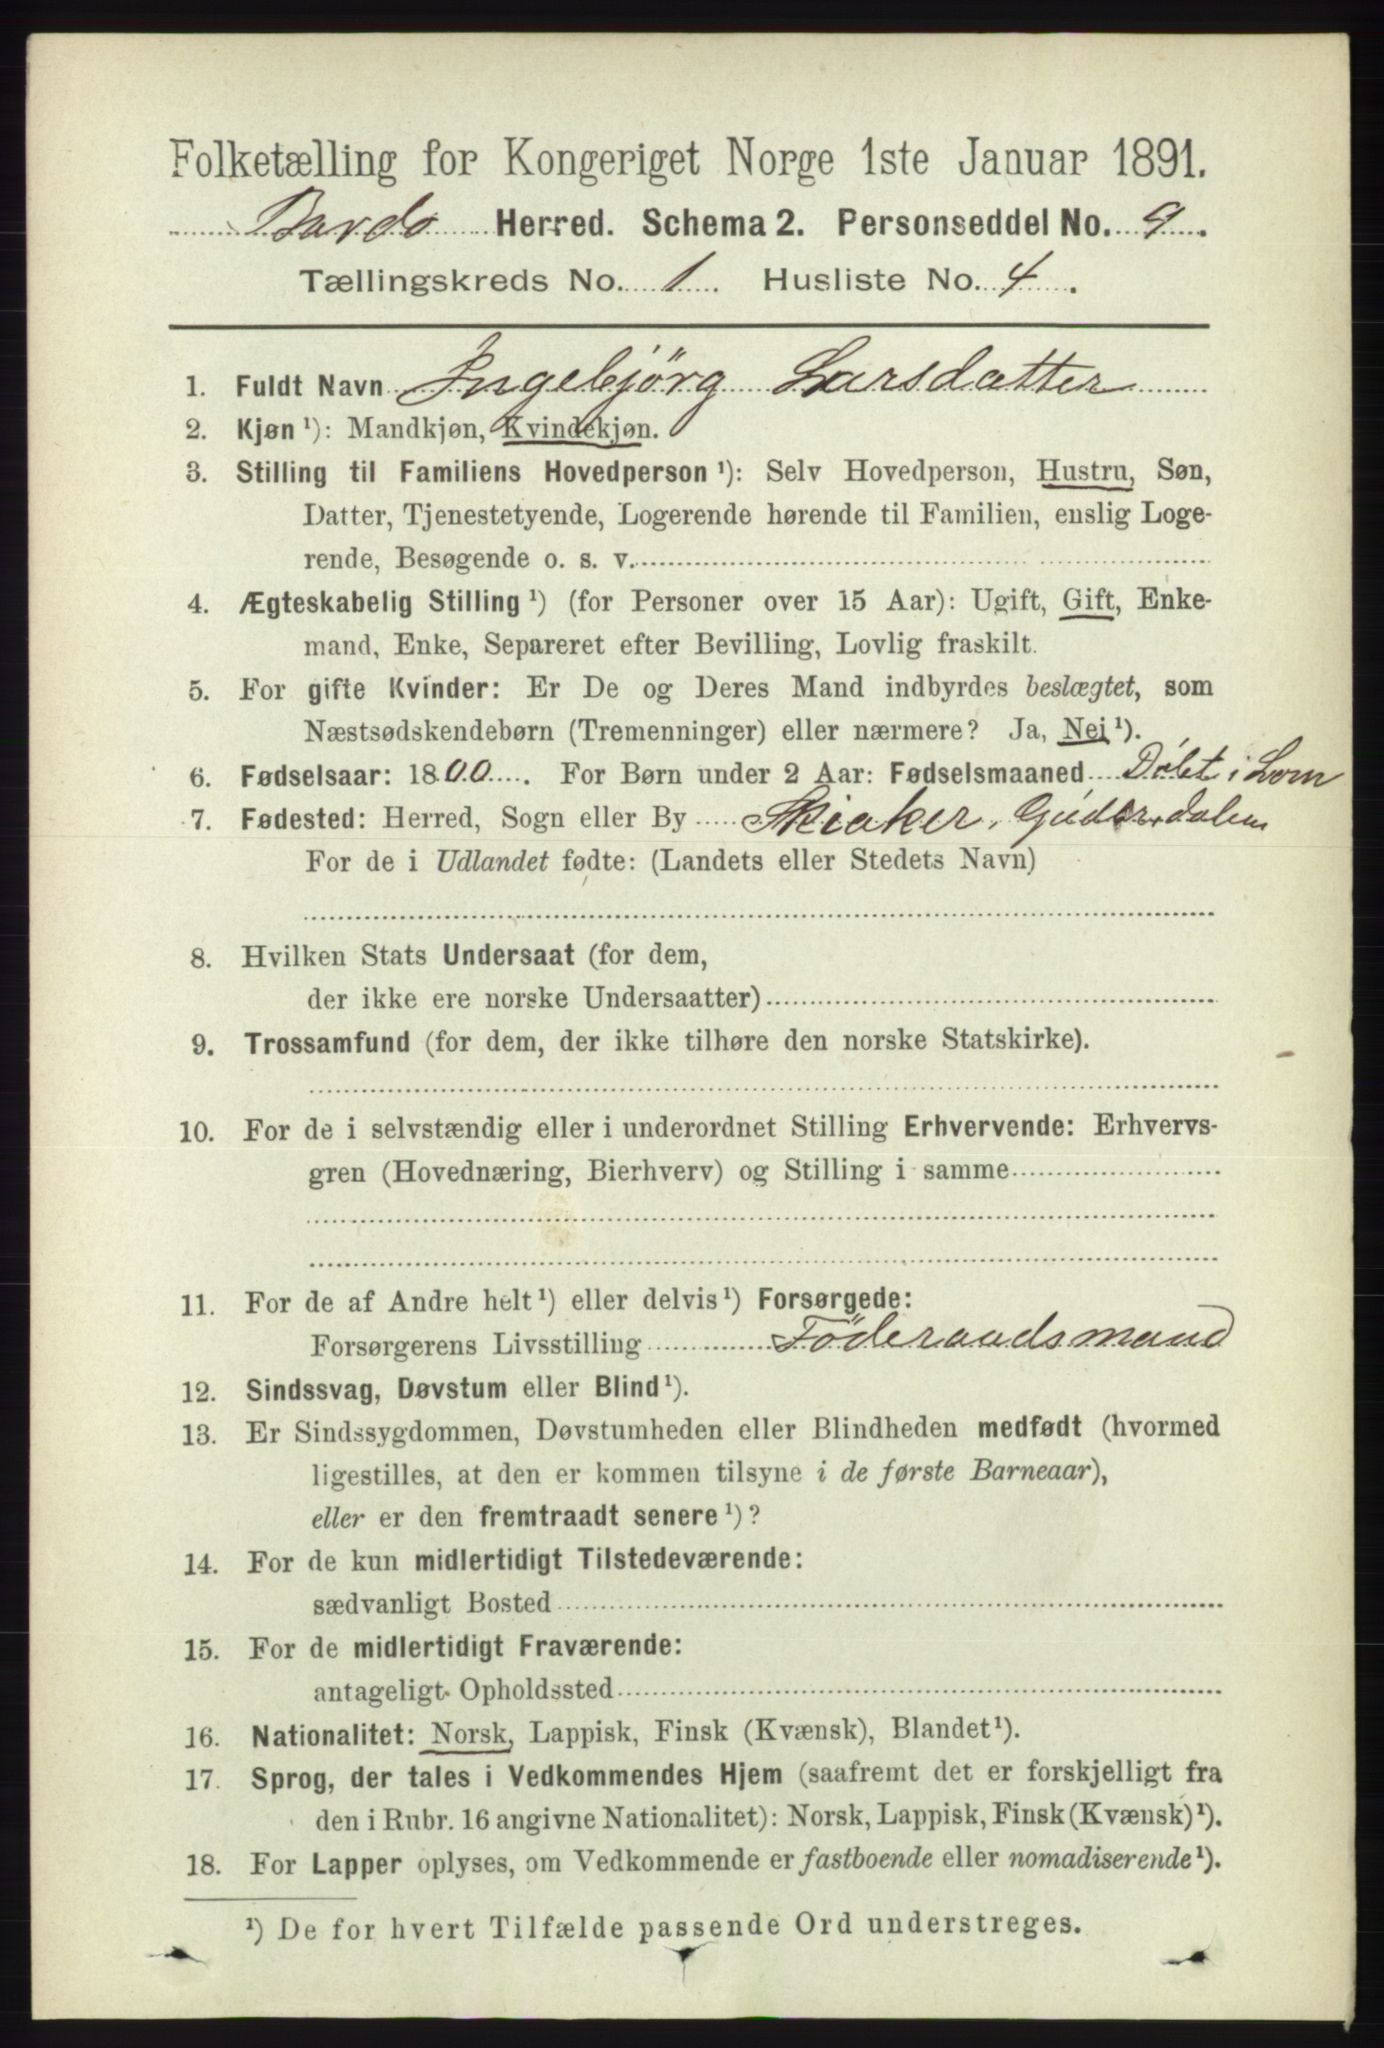 Folketælling for Kongeriget Norge 1ste Januar 1891.
Bardo Herred. Schema 2. Personseddel No. 9.
Tællingskreds No. 1. Husliste No. 4.
1. Fuldt Navn Ingebjørg Larsdatter
2. Kjøn ¹): Mandkjøn, Kvindekjøn.
3. Stilling til Familiens Hovedperson ¹): Selv Hovedperson, Hustru, Søn,
Datter, Tjenestetyende, Logerende hørende til Familien, enslig Loge-
rende, Besøgende o. s. v.
4. Ægteskabelig Stilling ¹) (for Personer over 15 Aar): Ugift, Gift, Enke-
mand, Enke, Separeret efter Bevilling, Lovlig fraskilt.
5. For gifte Kvinder: Er De og Deres Mand indbyrdes beslægtet, som
Næstsødskendebørn (Tremenninger) eller nærmere? Ja, Nei ¹).
6. Fødselsaar: 1800. For Børn under 2 Aar: Fødselsmaaned i Lom
7. Fødested: Herred, Sogn eller By Skiaker, Gudbr.dalen
For de i Udlandet fødte: (Landets eller Stedets Navn)
8. Hvilken Stats Undersaat (for dem,
der ikke ere norske Undersaatter)
9. Trossamfund (for dem, der ikke tilhøre den norske Statskirke).
10. For de i selvstændig eller i underordnet Stilling Erhvervende: Erhvervs-
gren (Hovednæring, Bierhverv) og Stilling i samme
11. For de af Andre helt ¹) eller delvis ¹) Forsørgede:
Forsørgerens Livsstilling Föderaadsmand
12. Sindssvag, Døvstum eller Blind ¹).
13. Er Sindssygdommen, Døvstumheden eller Blindheden medfødt (hvormed
ligestilles, at den er kommen tilsyne i de første Barneaar),
eller er den fremtraadt senere ¹)?
14. For de kun midlertidigt Tilstedeværende:
sædvanligt Bosted
15. For de midlertidigt Fraværende:
antageligt Opholdssted
16. Nationalitet: Norsk, Lappisk, Finsk (Kvænsk), Blandet ¹).
17. Sprog, der tales i Vedkommendes Hjem (saafremt det er forskjelligt fra
den i Rubr. 16 angivne Nationalitet): Norsk, Lappisk, Finsk (Kvænsk) ¹).
18. For Lapper oplyses, om Vedkommende er fastboende eller nomadiserende ¹).
¹) De for hvert Tilfælde passende Ord understreges.